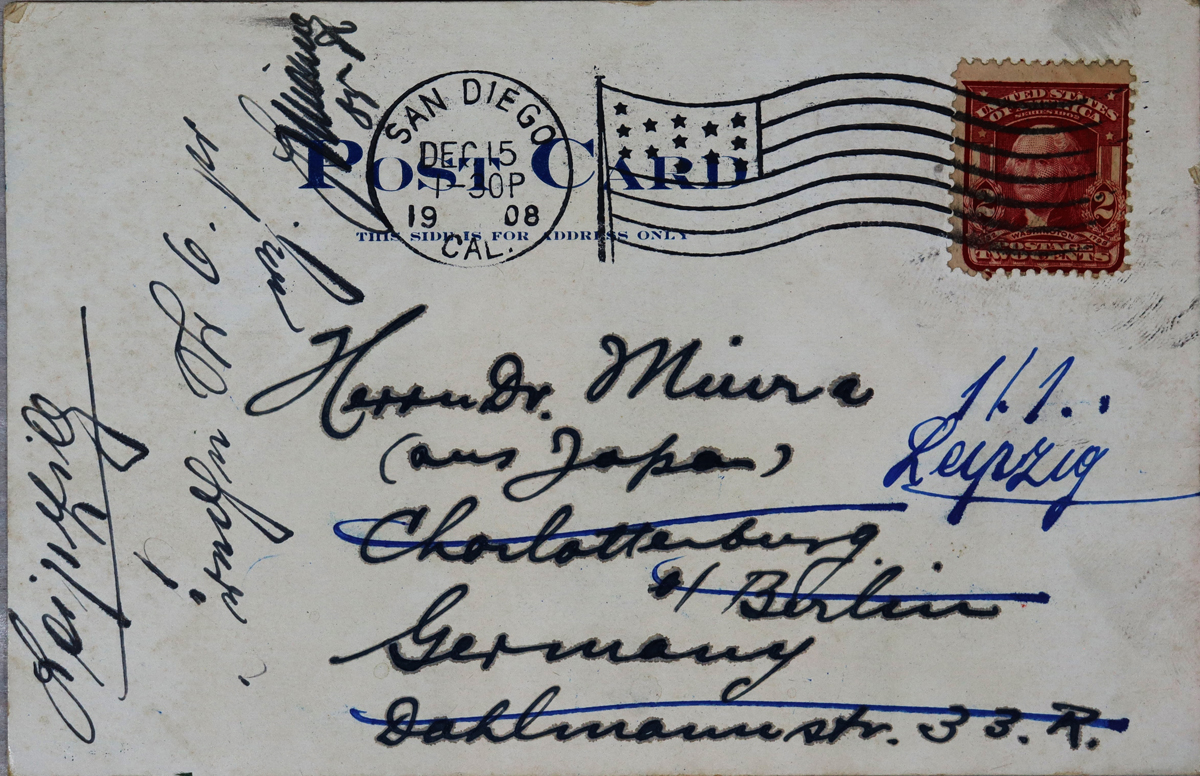 SAN DIEGO
DEC 15
1-30P
19 08
CAL.
POST CARD
THIS SIDE IS FOR ADDRESS ONLY
UNITED STATES
OF AMERICA
SERIES 1902
2 2
WASHINGTON
TWO CENTS
Herrn Dr. Miura
(aus Japan)
Charlottenburg
a/ Berlin
Germany
Dahlmannstr. 33. R.
Leipzig